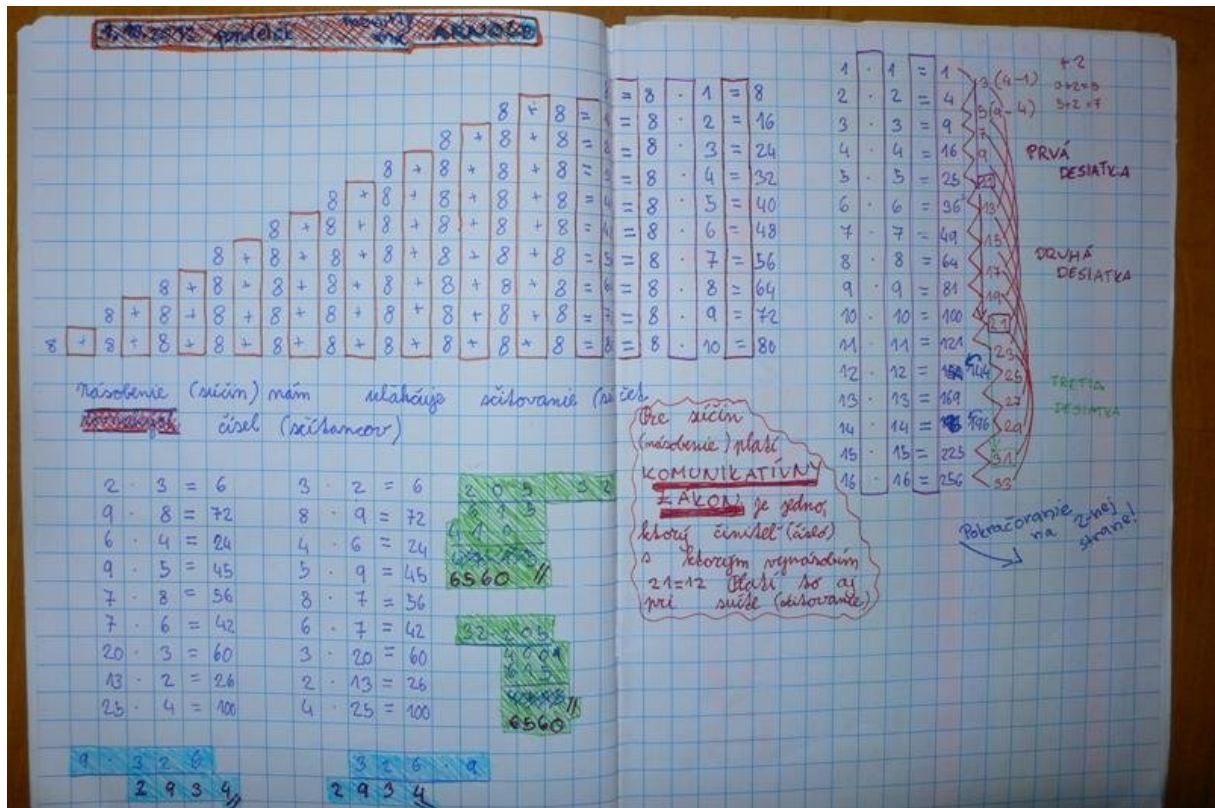 1.10.2012 pondelok ARNOLD
8 + 8 = = 8 · 1 = 8
8 + 8 + 8 = = 8 · 2 = 16
8 + 8 + 8 = = 8 · 3 = 24
8 + 8 + 8 + 8 = = 8 · 4 = 32
8 + 8 + 8 + 8 + 8 = = 8 · 5 = 40
8 + 8 + 8 + 8 + 8 + 8 = = 8 · 6 = 48
8 + 8 + 8 + 8 + 8 + 8 + 8 = = 8 · 7 = 56
8 + 8 + 8 + 8 + 8 + 8 + 8 + 8 = = 8 · 8 = 64
8 + 8 + 8 + 8 + 8 + 8 + 8 + 8 + 8 = = 8 · 9 = 72
8 + 8 + 8 + 8 + 8 + 8 + 8 + 8 + 8 + 8 = 8 = 8 · 10 = 80
Násobenie (súčin) nám uľahčuje sčitovanie (súčet
čísel (sčítancov)
2 · 3 = 6 3 · 2 = 6
9 · 8 = 72 8 · 9 = 72
6 · 4 = 24 4 · 6 = 24
9 · 5 = 45 5 · 9 = 45
7 · 8 = 56 8 · 7 = 56
7 · 6 = 42 6 · 7 = 42
20 · 3 = 60 3 · 20 = 60
13 · 2 = 26 2 · 13 = 26
25 · 4 = 100 4 · 25 = 100
205 · 32
615
410
6560
32 · 205
6560
9 · 326
2934
326 · 9
2934
Pre súčin
(násobenie) platí
KOMUNIKATÍVNY
ZÁKON, je jedno,
ktorý činiteľ (číslo)
s ktorým vynásobím
21=12 Platí to aj
pri súčte (sčitovanie)
1 · 1 = 1
2 · 2 = 4
3 · 3 = 9
4 · 4 = 16
5 · 5 = 25
6 · 6 = 36
7 · 7 = 49
8 · 8 = 64
9 · 9 = 81
10 · 10 = 100
11 · 11 = 121
12 · 12 = 144
13 · 13 = 169
14 · 14 = 196
15 · 15 = 225
16 · 16 = 256
3 (4-1)
5 (9-4)
7
9
13
15
17
19
21
23
25
27
29
31
33
+2
3+2=5
5+2=7
PRVÁ
DESIATKA
DRUHÁ
DESIATKA
TRETIA
DESIATKA
Pokračovanie
na 2-hej
strane!